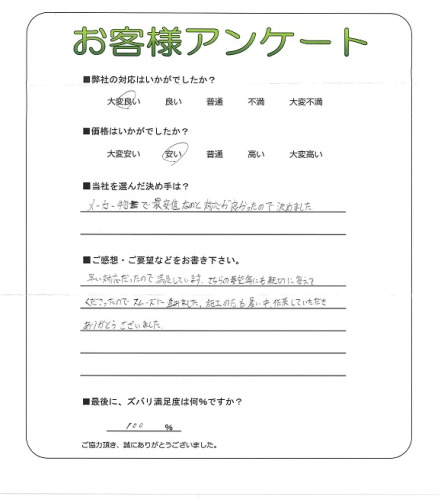 お客様アンケート
■弊社の対応はいかがでしたか？
大変良い 良い 普通 不満 大変不満
■価格はいかがでしたか？
大変安い 安い 普通 高い 大変高い
■当社を選んだ決め手は？
メーカー で最安値なのと対応が良かったので決めました
■ご感想・ご要望などをお書き下さい。
早い対応だったので満足しています。こちらの要望等にも親切に答えて
くださったのでスムーズに 施工の日も暑い中作業していただき
ありがとうございました。
■最後に、ズバリ満足度は何％ですか？
100 ％
ご協力頂き、誠にありがとうございました。